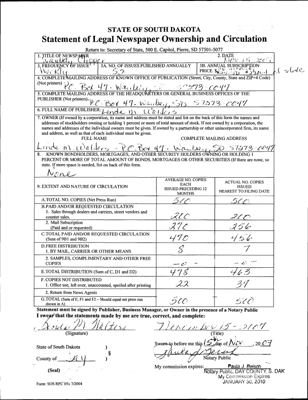 STATE OF SOUTH DAKOTA
Statement of Legal Newspaper Ownership and Circulation
Return to: Secretary of State, 500 E. Capitol, Pierre, SD 57501-5077
1. TITLE OF NEWSPAPER
2. DATE
Nov 15
3. FREQUENCY OF ISSUE
3A. NO. OF ISSUES PUBLISHED ANNUALLY
3B. ANNUAL SUBSCRIPTION PRICE
Weekly
52
out of state
4. COMPLETE MAILING ADDRESS OF KNOWN OFFICE OF PUBLICATION (Street, City, County, State and ZIP+4 Code)
(Not printers)
PO Box 47 57373 0047
5. COMPLETE MAILING ADDRESS OF THE HEADQUARTERS OF GENERAL BUSINESS OFFICES OF THE
PUBLISHER (Not printers)
PO Box 47 SD 57373 0047
6. FULL NAME OF PUBLISHER:
Linda M
7. OWNER (If owned by a corporation, its name and address must be stated and listed on the back of this form the names and
addresses of stockholders owning or holding 1 percent or more of total amount of stock. If not owned by a corporation, the
names and addresses of the individual owners must be given. If owned by a partnership or other unincorporated firm, its name
and address, as well as that of each individual must be given.
FULL NAME
COMPLETE MAILING ADDRESS
Linda M PO Box 47 SD 57373 0047
8. KNOWN BONDHOLDERS, MORTGAGEES, AND OTHER SECURITY HOLDERS OWNING OR HOLDING 1
PERCENT OR MORE OF TOTAL AMOUNT OF BONDS, MORTGAGES OR OTHER SECURITIES (If there are none, so
state. If more space is needed, list on back of this form.
None
9. EXTENT AND NATURE OF CIRCULATION
AVERAGE NO. COPIES EACH ISSUED PRECEDING 12 MONTHS
ACTUAL NO. COPIES ISSUED NEAREST TO FILING DATE
A. TOTAL NO. COPIES (Net Press Run) 500 500
B. PAID AND/OR REQUESTED CIRCULATION
1. Sales through dealers and carriers, street vendors and
counter sales. 200 200
2. Mail Subscription
(Paid and or requested) 270 256
C. TOTAL PAID AND/OR REQUESTED CIRCULATION
(Sum of 9B1 and 9B2) 470 456
D. FREE DISTRIBUTION
1. BY MAIL, CARRIER OR OTHER MEANS 8 7
2. SAMPLES, COMPLIMENTARY AND OTHER FREE
COPIES -0- -0-
E. TOTAL DISTRIBUTION (Sum of C, D1 and D2) 478 463
F. COPIES NOT DISTRIBUTED
1. Office use, left over, unaccounted, spoiled after printing 22 37
2. Return from News Agents
G. TOTAL (Sum of E, F1 and F2 - Should equal net press run
shown in A) 500 500
Statement must be signed by Publisher, Business Manager, or Owner in the presence of a Notary Public
I swear that the statements made by me are true, correct, and complete:
(Signature)
(Title)
State of South Dakota )
Sworn to before me this 15 day of Nov, 2007
County of
Notary Public
(Seal)
My commission expires:
Paula J. Reison
Notary Public, DAY COUNTY, S. DAK
My Commission Expires
JANUARY 30, 2010